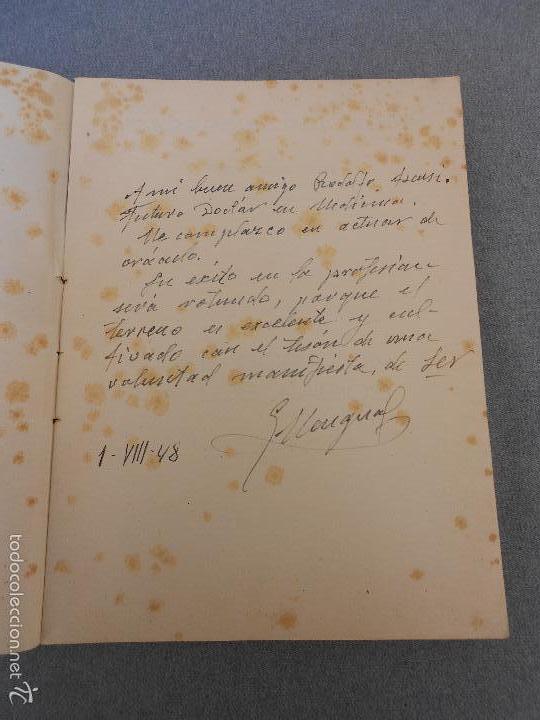 A mi buen amigo Rodolfo
Futuro Doctor en Medicina.
Me complazco en actuar de
oráculo.
Su éxito en la profesión
será rotundo, porque el
terreno es excelente y cul-
tivado con el tesón de una
voluntad manifiesta, de ser
1-VIII-48
todocoleccion.net